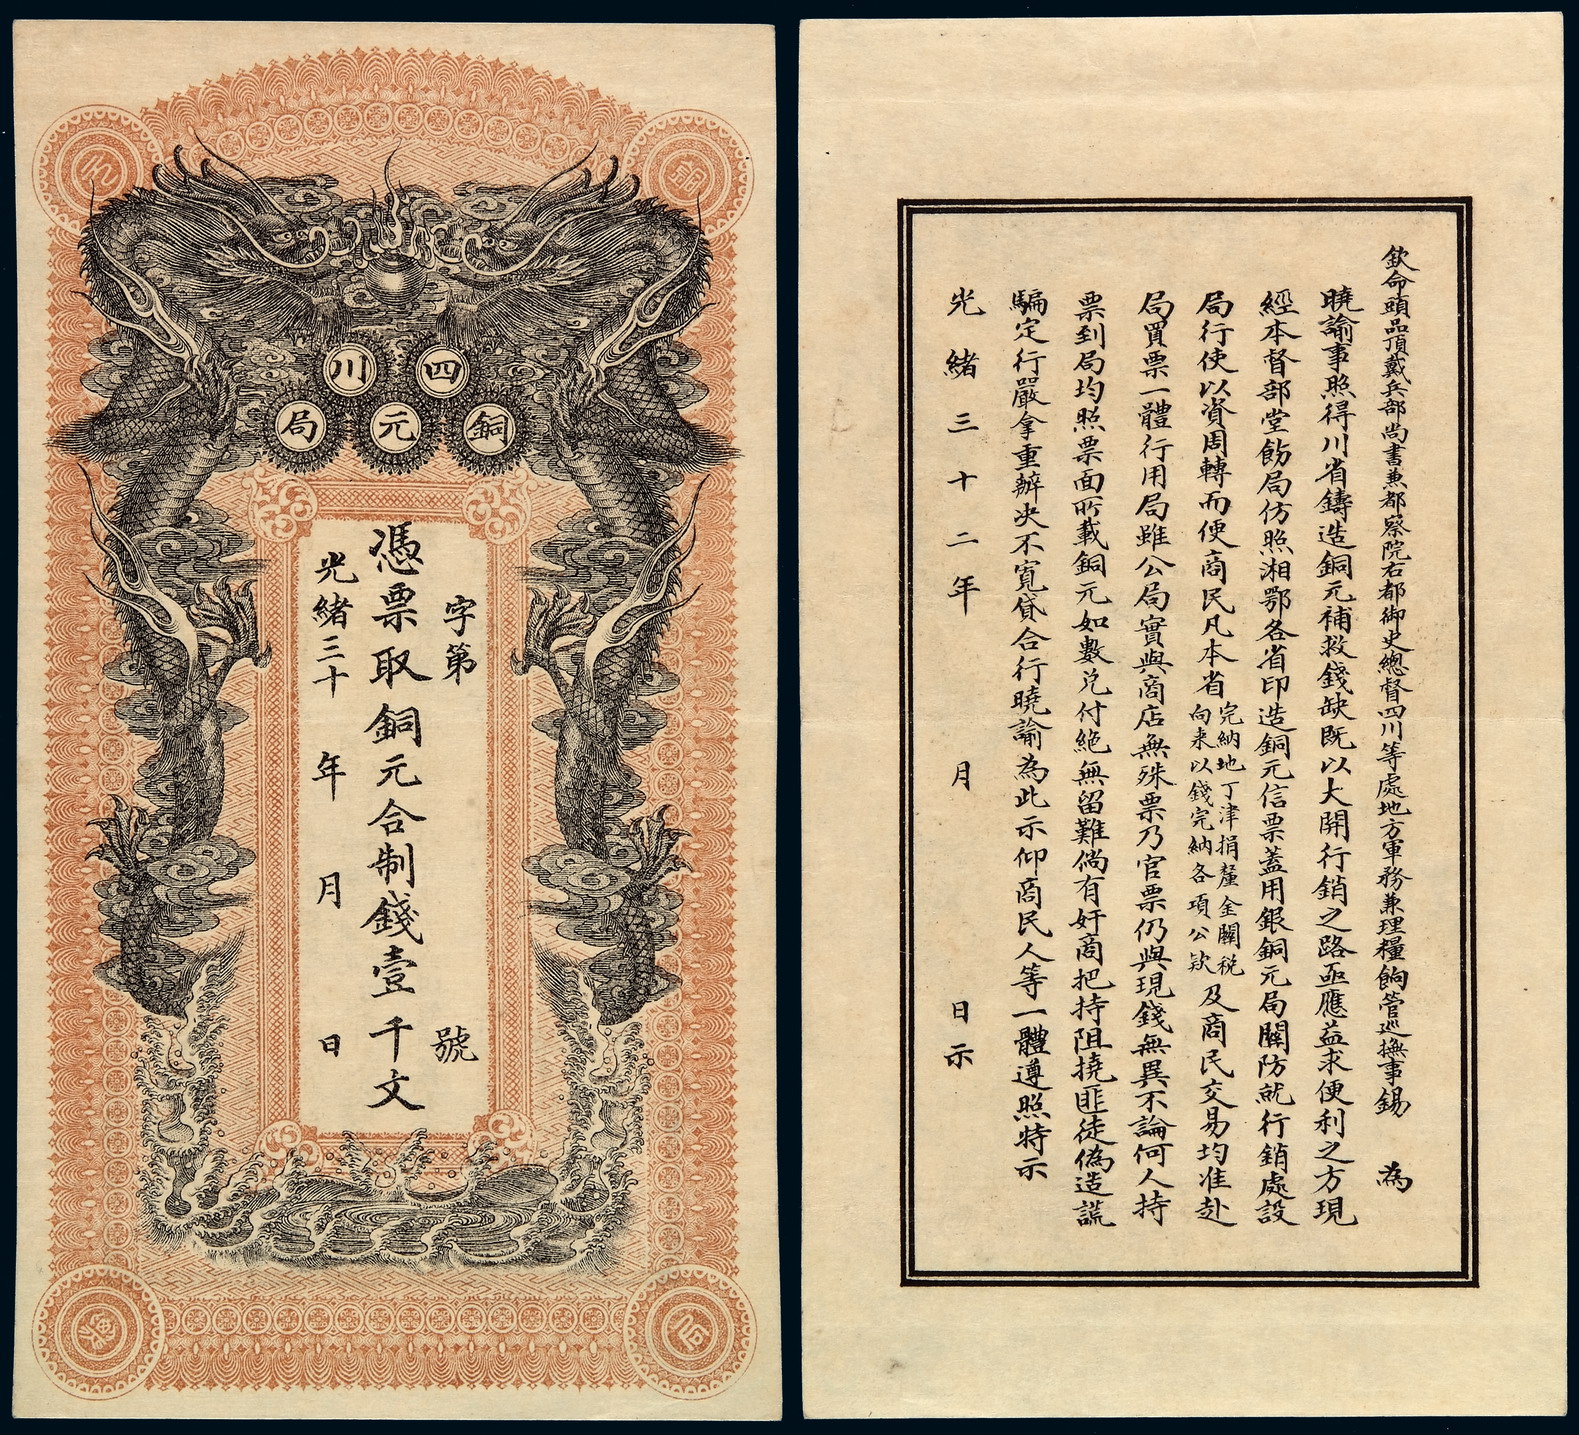 四川
銅元局
字第 號
憑票取銅元合制錢壹千文
光緒三十 年 月 日
欽命頭品頂戴兵部尚書兼都察院右都御史總督四川等處地方軍務兼理糧餉管巡撫事錫 為
曉諭事照得川省鑄造銅元補救錢缺既以大開行銷之路亟應益求便利之方現
經本督部堂飭局仿照湘鄂各省印造銅元信票蓋用銀銅元局關防就行銷處設
局行使以資周轉而便商民凡本省完納地丁津捐釐金關稅向來以錢完納各項公款及商民交易均准赴
局買票一體行用局雖公局實與商店無殊票乃官票仍與現錢無異不論何人持
票到局均照票面所載銅元如數兌付絕無留難倘有奸商把持阻撓匪徒偽造謊
騙定行嚴拿重辦决不寬貸合行曉諭為此示仰商民人等一體遵照特示
光緒三十二年 月 日示